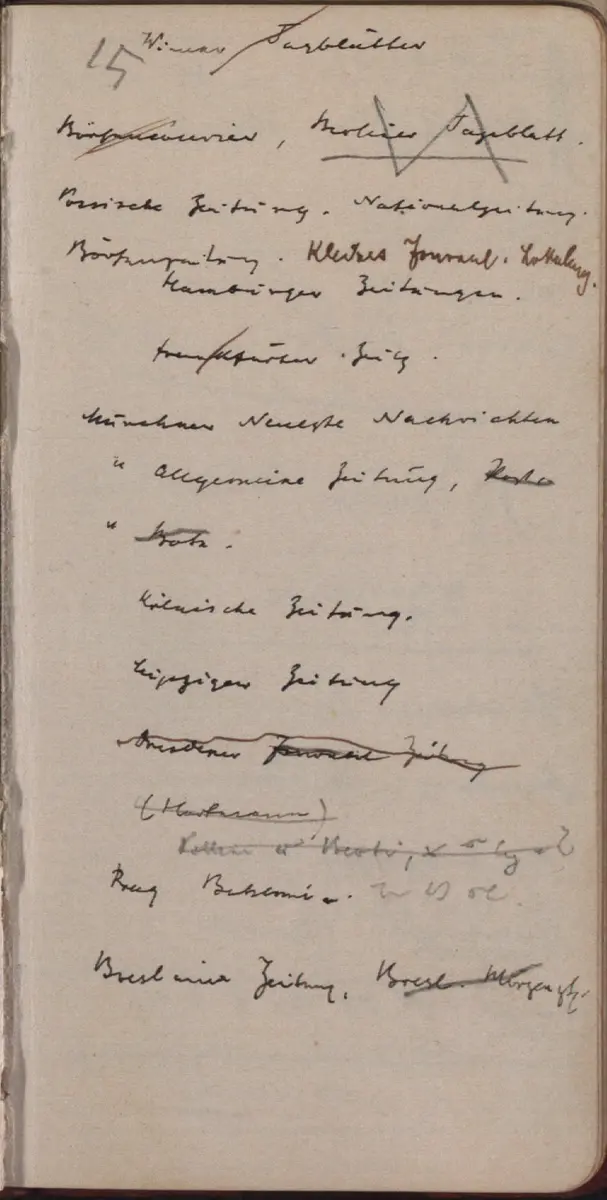 15 Wiener Tagblätter
Börsencourier, Berliner Tageblatt.
Vossische Zeitung. Nationalzeitung.
Börsenzeitung. Kleines Journal. Lokalanz.
Hamburger Zeitungen.
Frankfurter Zeitg.
Münchner Neueste Nachrichten
" Allgemeine Zeitung,
"
Kölnische Zeitung.
Leipziger Zeitung
Dresdener Journal Zeitung
(Hartmann)
Prag Bohemia.
Breslauer Zeitung, Bresl. Morgenztg.